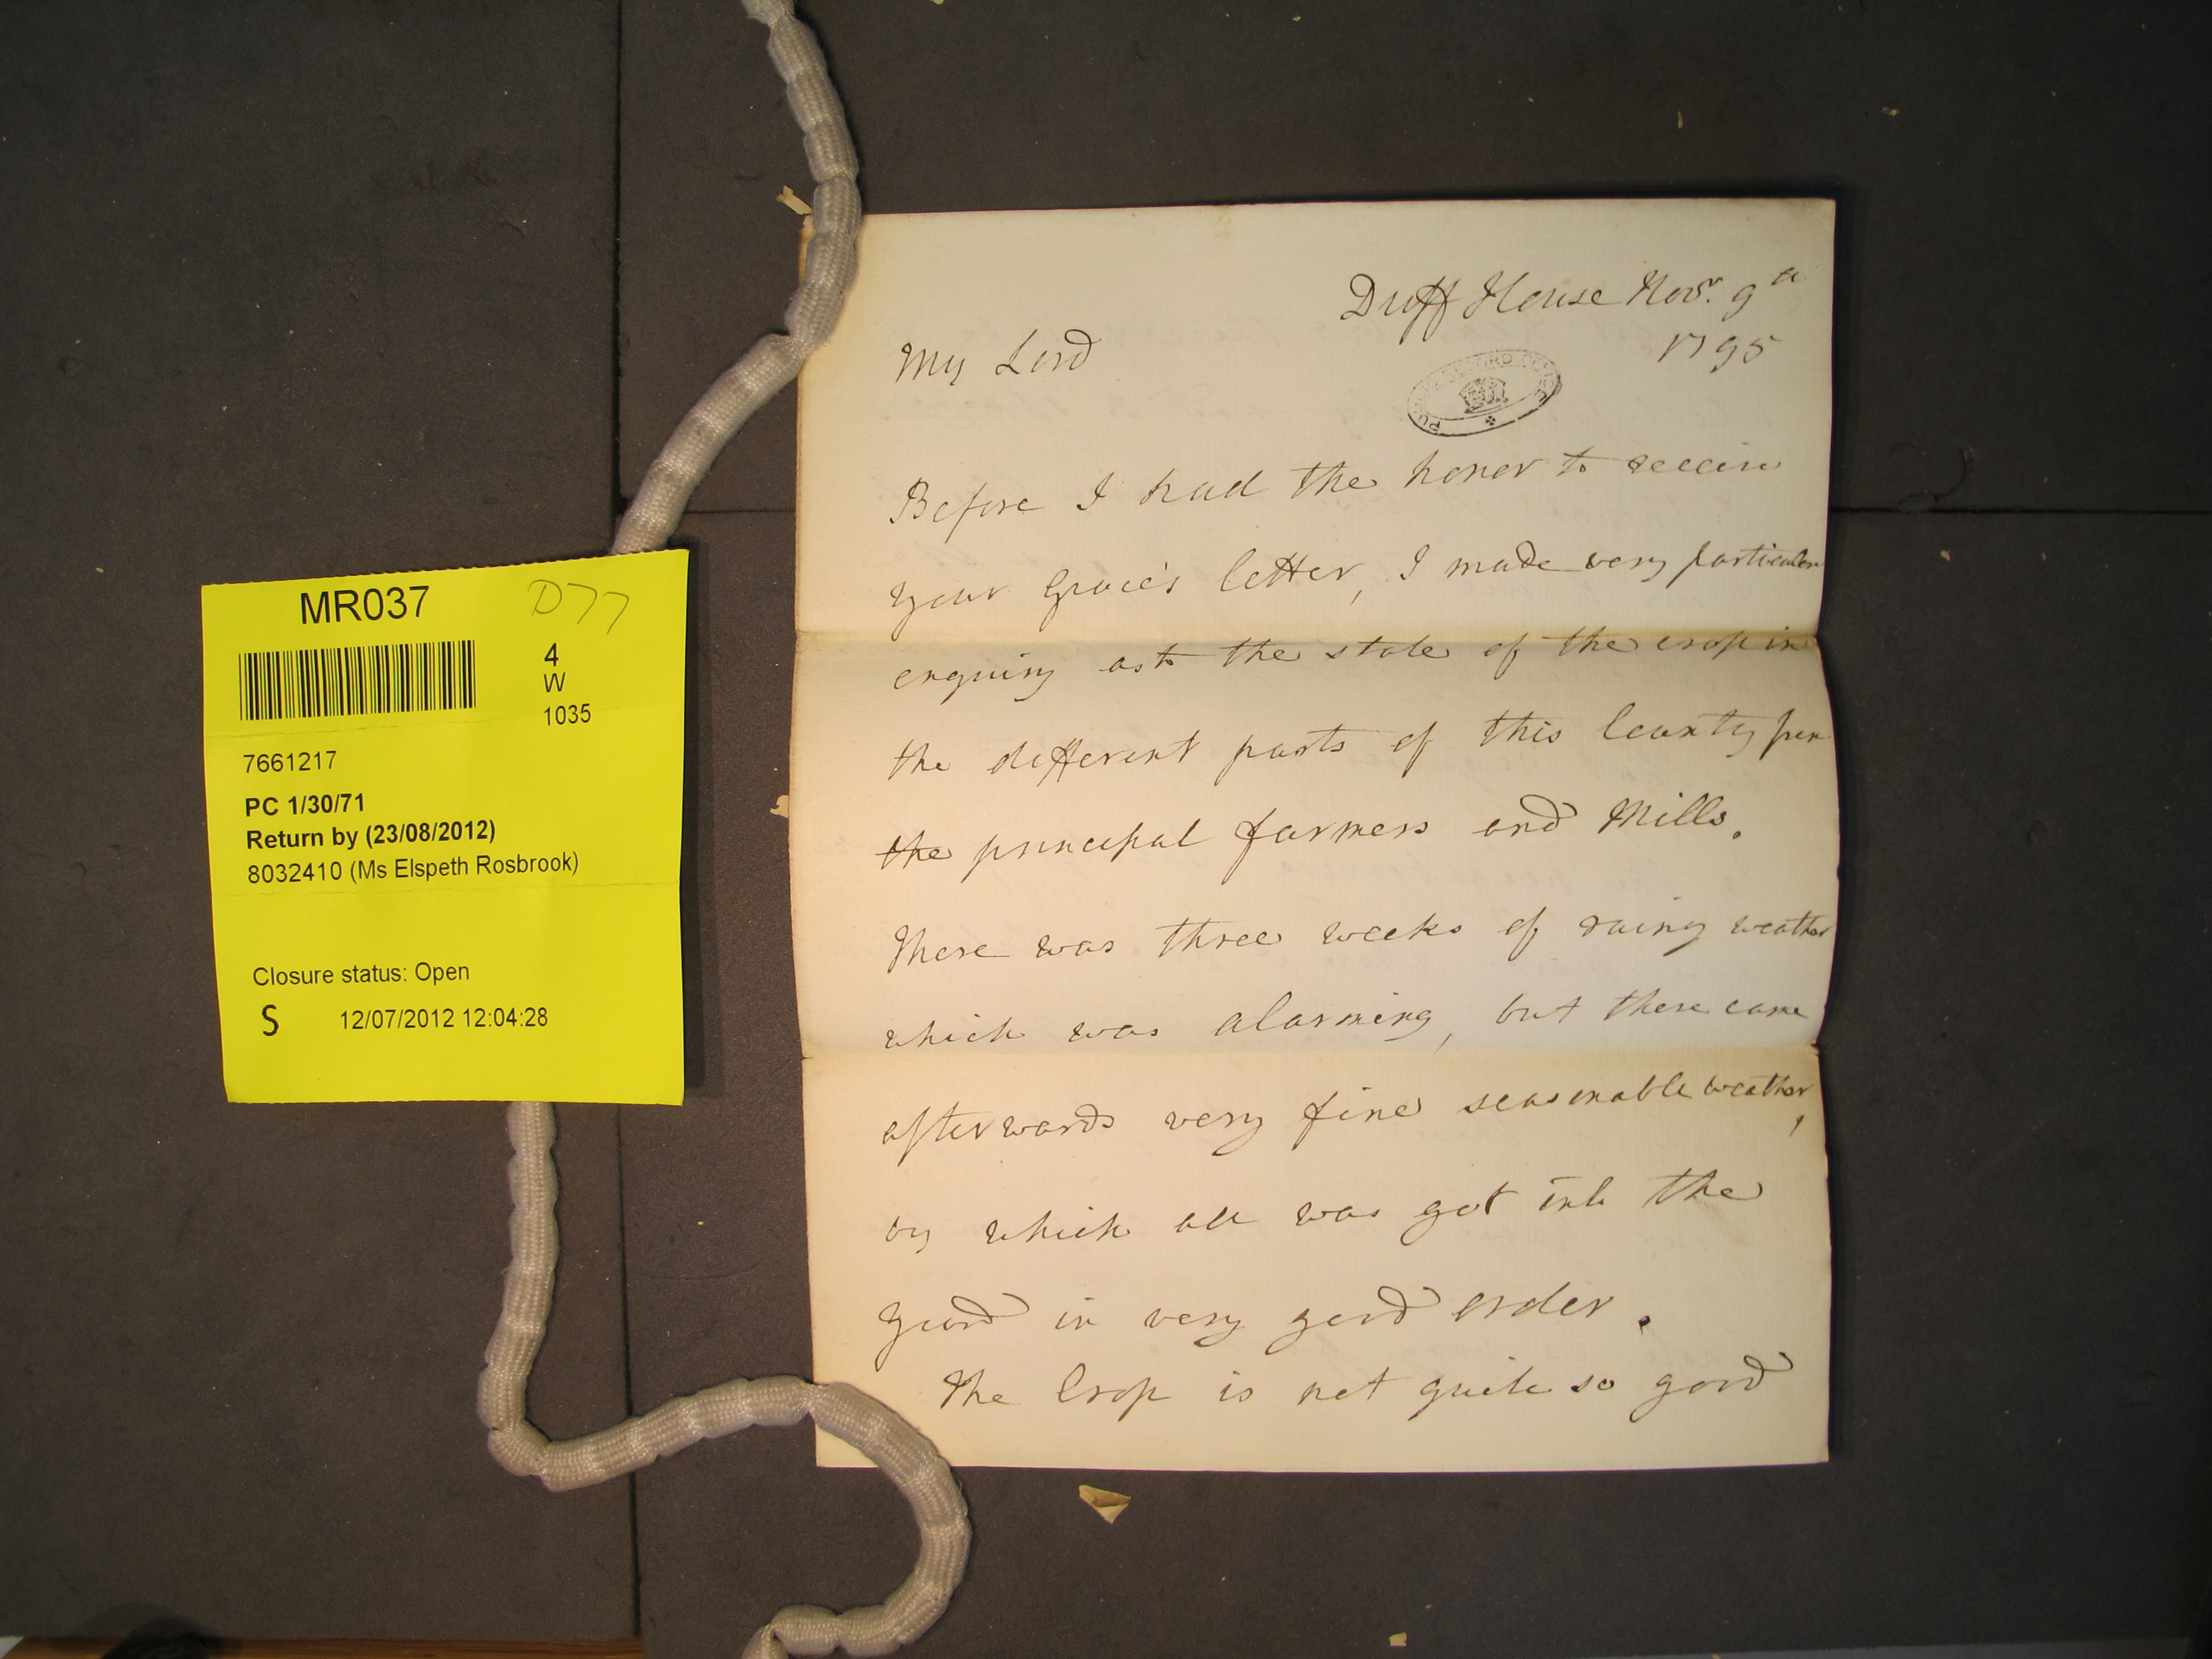 MR037
D77
4
W
1035
7661217
PC 1/30/71
Return by (23/08/2012)
8032410 (Ms Elspeth Rosbrook)
Closure status: Open
S 12/07/2012 12:04:28
Duff House Novr. 9th
1795
My Lord
PUBLIC RECORD OFFICE
Before I had the honor to receive
your Grace's letter, I made very particular
enquiry as to the state of the crop in
the different parts of this County
the principal farmers and Mills.
There was three weeks of rainy weather
which was alarming, but there came
afterwards very fine seasonable weather,
by which all was got into the
yard in very good order.
The Crop is not quite so good